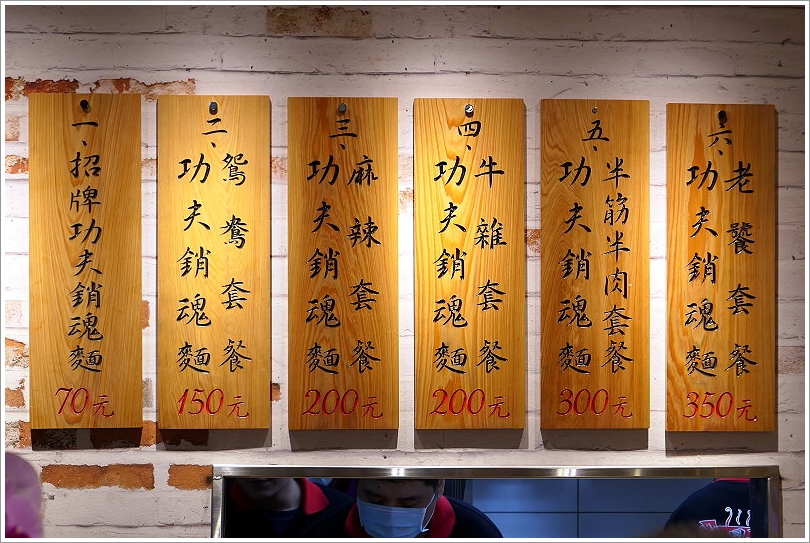 一、招牌功夫銷魂麵
70元
二、
鴛鴦套餐
功夫銷魂麵
150元
三、
麻辣套餐
功夫銷魂麵
200元
四、
牛雜套餐
功夫銷魂麵
200元
五、
半筋半肉套餐
功夫銷魂麵
300元
六、
老饕套餐
功夫銷魂麵
350元